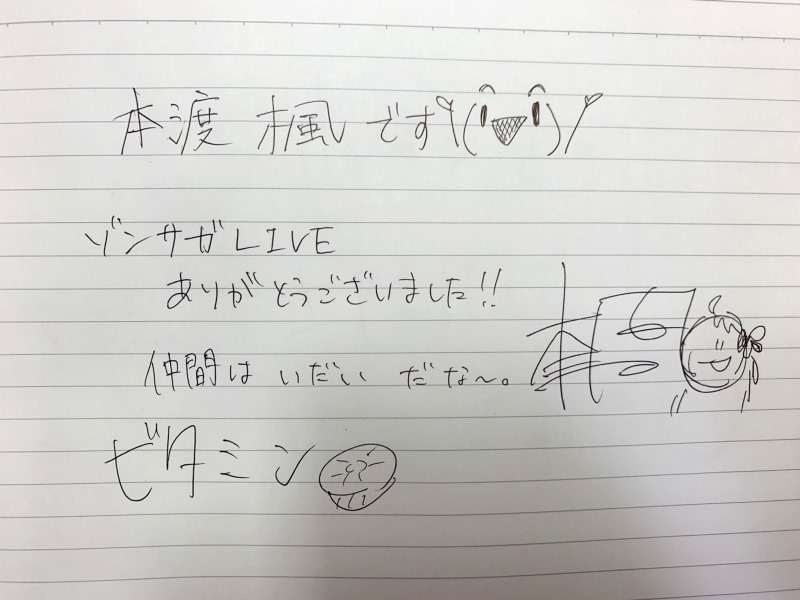 本渡 楓です
ゾンサガLIVE
ありがとうございました!!
仲間は いだい だな〜。
ビタミン